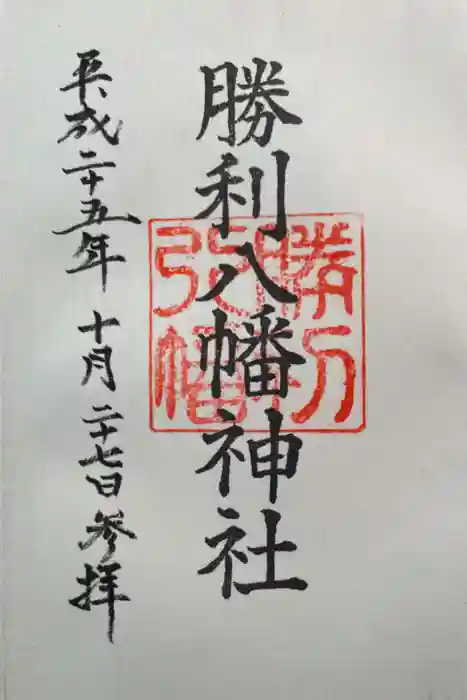 勝利八幡神社
平成二十五年 十月二十七日 参拝